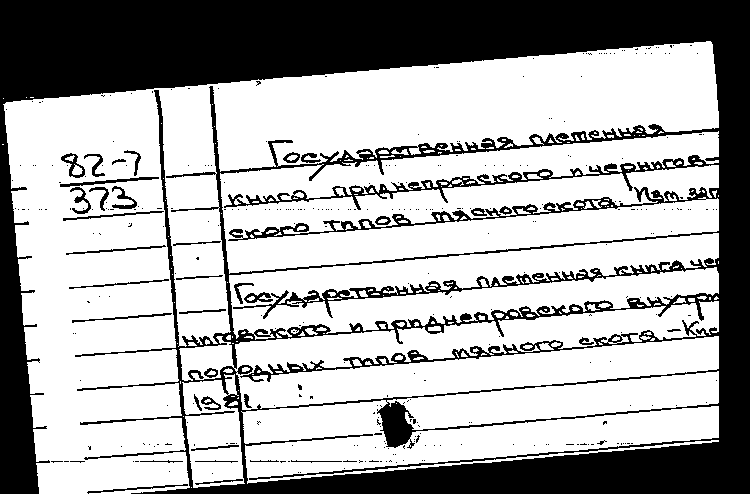 82-7
373
Государственная племенная
книга приднепровского и чернигов-
ского типов мясного скота. Изм. зап
Государственная племенная книга чер
ниговского и приднепровского внутри
породных типов мясного скота. - Кие
1981.